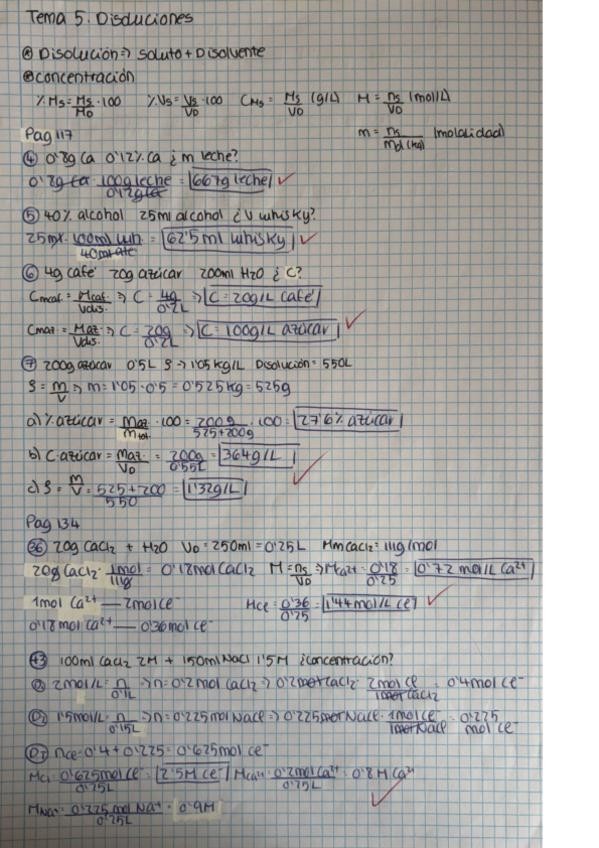 Tema 5. Disoluciones
⊛ Disolución ⇒ soluto + Disolvente
⊛ concentración
% Ms = Ms/MD · 100   % Vs = Vs/VD · 100   CMs = Ms/VD (g/L)   M = ns/VD (mol/L)
Pag 117   m = ns/MDl (kg) (molalidad)
④ 0'8g Ca 0'12% Ca ¿m leche?
0'8g Ca · 100g leche/0'12g Ca = 667g leche ✓
⑤ 40% alcohol 25ml alcohol ¿V whisky?
25ml · 100ml wh/40ml alc = 62'5 ml whisky ✓
⑥ 4g café 20g azúcar 200ml H2O ¿C?
Cmcaf. = Mcaf./Vdis. ⇒ C = 4g/0'2L ⇒ C = 20g/L café
Cmaz = Maz/Vdis. ⇒ C = 20g/0'2L ⇒ C = 100g/L azúcar ✓
⑦ 200g azúcar 0'5L ρ ⇒ 1'05 kg/L Disolución = 550L
ρ = m/V ⇒ m = 1'05 · 0'5 = 0'525 kg = 525g
a) % azúcar = Maz/mtot. · 100 = 200g/525+200g · 100 = 27'6% azúcar
b) C azúcar = maz/VD = 200g/0'55L = 364g/L
c) ρ = m/V = 525+200/550 = 1'32g/L ✓
Pag 134
㊱ 20g CaCl2 + H2O VD = 250ml = 0'25L Mm CaCl2 = 111g/mol
20g CaCl2 · 1mol/111g = 0'18mol CaCl2 M = ns/VD ⇒ MCa2+ = 0'18/0'25 = 0'72 mol/L Ca2+
1mol Ca2+ — 2mol Cl-   MCl = 0'36/0'25 = 1'44 mol/L Cl- ✓
0'18 mol Ca2+ — 0'36 mol Cl-
㊸ 100ml CaCl2 2M + 150ml NaCl 1'5M ¿concentración?
D1 2mol/L = n/0'1L ⇒ n = 0'2mol CaCl2 ⇒ 0'2mol CaCl2 · 2mol Cl/1mol CaCl2 = 0'4mol Cl-
D2 1'5mol/L = n/0'15L ⇒ n = 0'225mol NaCl ⇒ 0'225mol NaCl · 1mol Cl-/1mol NaCl = 0'225 mol Cl-
DT nCl = 0'4 + 0'225 = 0'625mol Cl-
MCl = 0'625mol Cl-/0'25L = 2'5M Cl- MCa2+ = 0'2mol Ca2+/0'25L = 0'8M Ca2+
MNa+ = 0'225 mol Na+/0'25L = 0'9M ✓